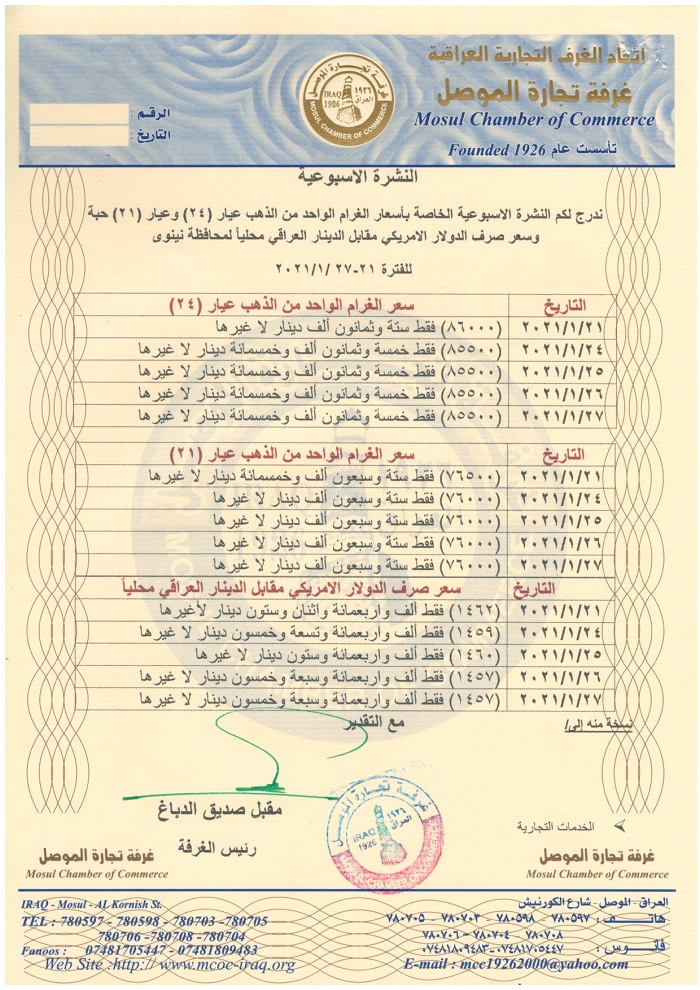 اتحاد الغرف التجارية العراقية
غرفة تجارة الموصل
Mosul Chamber of Commerce
Founded 1926 تأسست عام
غرفة تجارة الموصل
IRAQ 1926
١٩٢٦ العراق
MOSUL CHAMBER OF COMMERCE
الرقم :
التاريخ :
النشرة الاسبوعية
ندرج لكم النشرة الاسبوعية الخاصة بأسعار الغرام الواحد من الذهب عيار (٢٤) وعيار (٢١) حبة
وسعر صرف الدولار الامريكي مقابل الدينار العراقي محلياً لمحافظة نينوى
للفترة ٢١-٢٧ /١/ ٢٠٢١
التاريخ سعر الغرام الواحد من الذهب عيار (٢٤)
٢٠٢١/١/٢١ (٨٦٠٠٠) فقط ستة وثمانون ألف دينار لا غيرها
٢٠٢١/١/٢٤ (٨٥٥٠٠) فقط خمسة وثمانون ألف وخمسمائة دينار لا غيرها
٢٠٢١/١/٢٥ (٨٥٥٠٠) فقط خمسة وثمانون ألف وخمسمائة دينار لا غيرها
٢٠٢١/١/٢٦ (٨٥٥٠٠) فقط خمسة وثمانون ألف وخمسمائة دينار لا غيرها
٢٠٢١/١/٢٧ (٨٥٥٠٠) فقط خمسة وثمانون ألف وخمسمائة دينار لا غيرها
التاريخ سعر الغرام الواحد من الذهب عيار (٢١)
٢٠٢١/١/٢١ (٧٦٥٠٠) فقط ستة وسبعون ألف وخمسمائة دينار لا غيرها
٢٠٢١/١/٢٤ (٧٦٠٠٠) فقط ستة وسبعون ألف دينار لا غيرها
٢٠٢١/١/٢٥ (٧٦٠٠٠) فقط ستة وسبعون ألف دينار لا غيرها
٢٠٢١/١/٢٦ (٧٦٠٠٠) فقط ستة وسبعون ألف دينار لا غيرها
٢٠٢١/١/٢٧ (٧٦٠٠٠) فقط ستة وسبعون ألف دينار لا غيرها
التاريخ سعر صرف الدولار الامريكي مقابل الدينار العراقي محلياً
٢٠٢١/١/٢١ (١٤٦٢) فقط ألف واربعمائة واثنان وستون دينار لأغيرها
٢٠٢١/١/٢٤ (١٤٥٩) فقط ألف واربعمائة وتسعة وخمسون دينار لا غيرها
٢٠٢١/١/٢٥ (١٤٦٠) فقط ألف واربعمائة وستون دينار لا غيرها
٢٠٢١/١/٢٦ (١٤٥٧) فقط ألف واربعمائة وسبعة وخمسون دينار لا غيرها
٢٠٢١/١/٢٧ (١٤٥٧) فقط ألف واربعمائة وسبعة وخمسون دينار لا غيرها
نسخة منه إلى/
مع التقدير
مقبل صديق الدباغ
رئيس الغرفة
غرفة تجارة الموصل
IRAQ 1926
١٩٢٦ العراق
MOSUL CHAMBER OF COMMERCE
➢ الخدمات التجارية
غرفة تجارة الموصل
Mosul Chamber of Commerce
غرفة تجارة الموصل
Mosul Chamber of Commerce
العراق - الموصل - شارع الكورنيش
هاتف : ٧٨٠٥٩٧ - ٧٨٠٥٩٨ - ٧٨٠٧٠٣ - ٧٨٠٧٠٥
٧٨٠٧٠٨ - ٧٨٠٧٠٤ - ٧٨٠٧٠٦
فانوس : ٠٧٤٨١٧٠٥٤٤٧-٠٧٤٨١٨٠٩٤٨٣
E-mail : mcc19262000@yahoo.com
IRAQ - Mosul - AL Kornish St.
TEL : 780597 - 780598 - 780703 -780705
780706 -780708 -780704
Fanoos : 07481705447 - 07481809483
Web Site :http:// www.mcoc-iraq.org